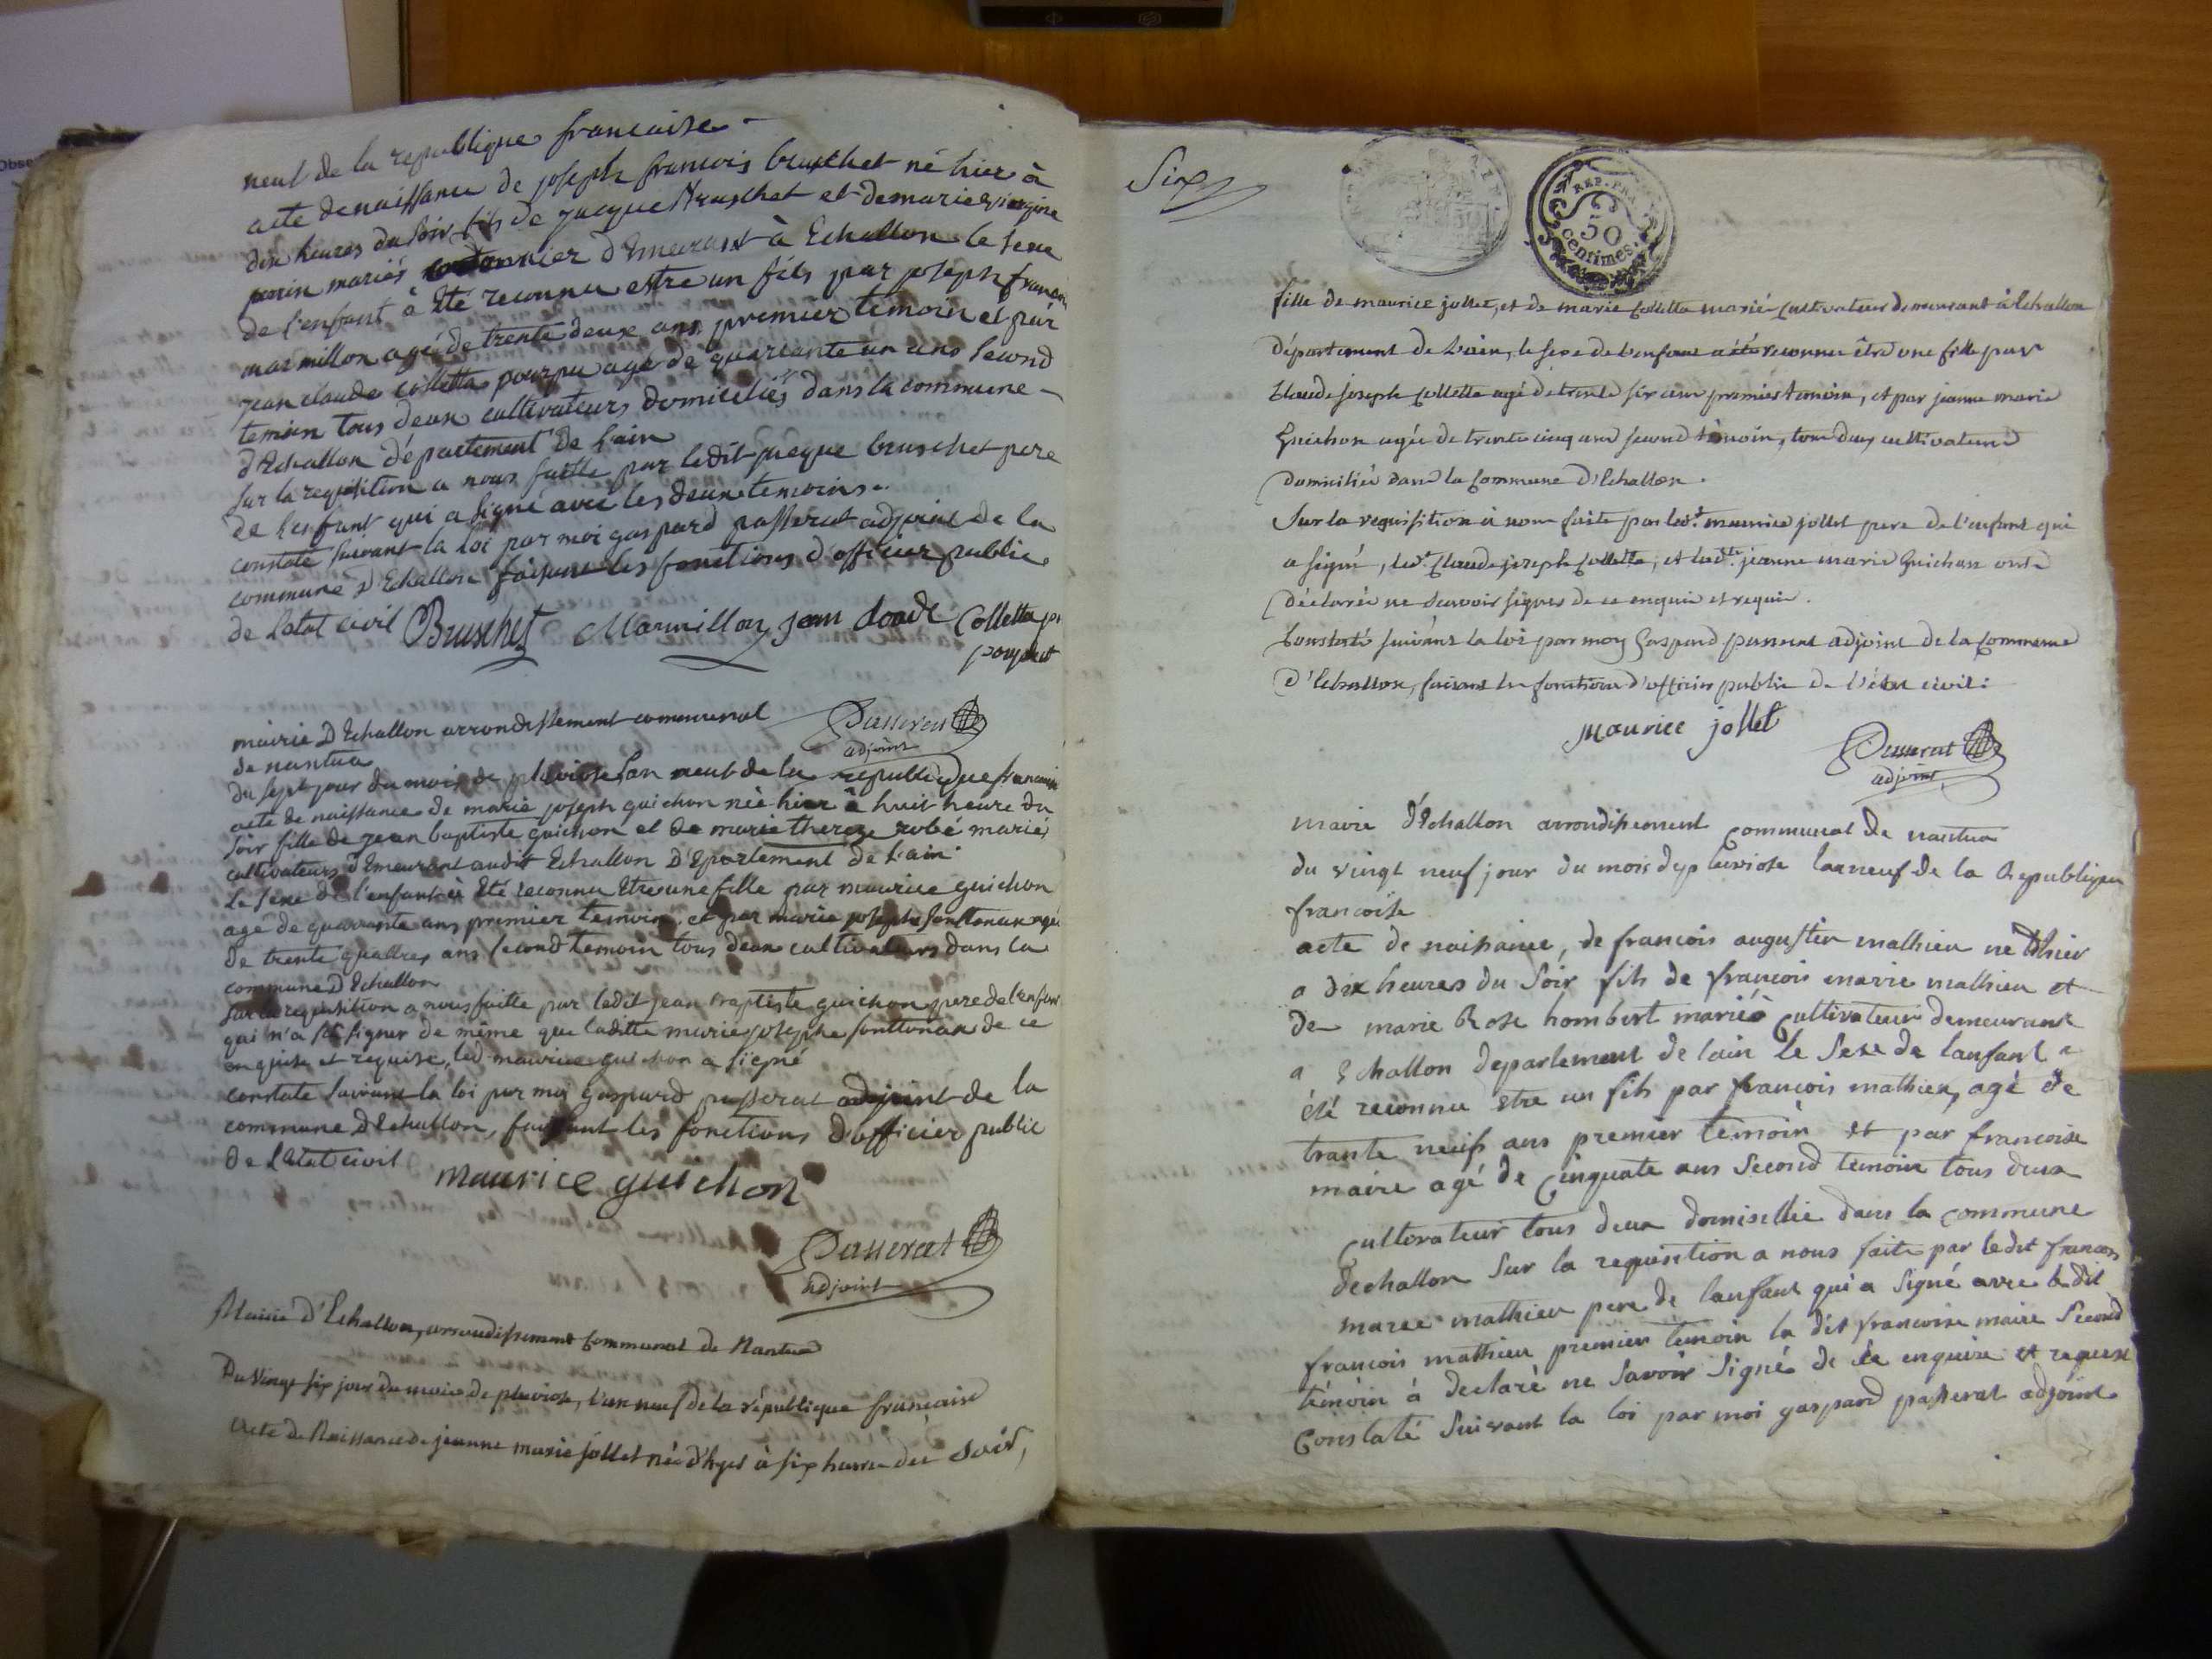 neuf de la republique francaise
acte de naissance de joseph francois bruschet né hier à
dix heures du soir fils de jacque Bruschet et de marie
perrin mariés demeurant à Echallon le sexe
de l'enfant à été reconnu estre un fils par joseph francois
marmillon agé de trente deux ans premier témoin et par
jean claude colletta agé de quarante un ans second
temoin tous deux cultivateurs domiciliés dans la commune
d'Echallon département de l'ain
sur la requisition a nous faitte par ledit jacque bruschet pere
de l'enfant qui a signé avec les deux temoins
constaté suivant la loi par moi gaspard passerat adjoint de la
commune d'Echallon faisant les fonctions d'officier public
de l'etat civil Bruschet Marmillon jean cloude Colletta
Passerat
adjoint
mairie D'Echallon arrondissement communal
de nantua
du sept jour du mois de pluviose l'an neuf de la republique francaise
acte de naissance de marie joseph guichon née hier à huit heure du
soir fille de jean baptiste guichon et de marie thereze robé mariés
cultivateurs demeurant audit Echallon D'Epartement de l'ain
Le sexe de l'enfant à été reconnu être une fille par maurice guichon
agé de quarante ans premier temoin et par marie josephe agé
de trente quattres ans second temoin tous deux cultivateurs dans la
commune D'Echallon
sur la requisition a nous faitte par ledit jean baptiste guichon pere de l'enfant
qui n'a sû signer de même que laditte marie josephe de ce
enquise et requise, led. maurice guichon a signé
constaté suivant la loi par moi gaspard passerat adjoint de la
commune D'Echallon, faisant les fonctions d'officier public
de l'Etat civil
maurice guichon
Passerat
adjoint
Mairie d'Echallon, arrondissement communal de Nantua
Du Vingt six jour du mois de pluviose, l'an neuf de la république francaise
Acte de Naissance de jeanne marie jollet née d'hyer à six heures du soir,
Six
REP. FRA.
50
centimes
fille de maurice jollet, et de marie Colletta marié Cultivateur demeurant à Echallon
département de L'ain, le sexe de l'enfant a été reconnu être une fille par
Claude joseph Collette agé de trente six ans premier témoin, et par jeanne marie
Guichon agée de trente cinq ans second témoin, tous deux cultivateurs
domicilié dans la Commune d'Echallon.
Sur la requisition à nous faite par led.t maurice jollet pere de l'enfant qui
a signé, led.t Claude joseph Collette, et lad.te jeanne marie Guichon ont
déclarée ne sçavoir signer de ce enquis et requis.
Constaté suivant la loi par moy Gaspard passerat adjoint de la Commune
d'Echallon, faisant les fonctions d'officier public de l'état civil.
Maurice jollet
Passerat
adjoint
mairie d'Echallon arrondissement communal de nantua
du vingt neuf jour du mois de pluviose lan neuf de la Republique
francoise
acte de naisance, de francois augustin mathieu né dhier
a dix heures du soir fils de francois marie mathieu et
de marie Rose hombert mariés Cultivateur demeurant
a Echallon departement de lain le Sexe de lanfant a
été reconnu etre un fils par francois mathieu, agé de
trante neuf ans premier temoin et par francoise
maire agé de Cinquate ans Second temoin tous deux
Cultivateur tous deux domisillié dans la commune
dechallon Sur la requisition a nous faite par ledit francois
marie mathieu pere de lanfant qui a signé avec le dit
francois mathieu premier temoin la dit francoise maire Second
témoin à declaré ne Savoir Signé de ce enquise et requise
Constaté Suivant la loi par moi gaspard passerat adjoint